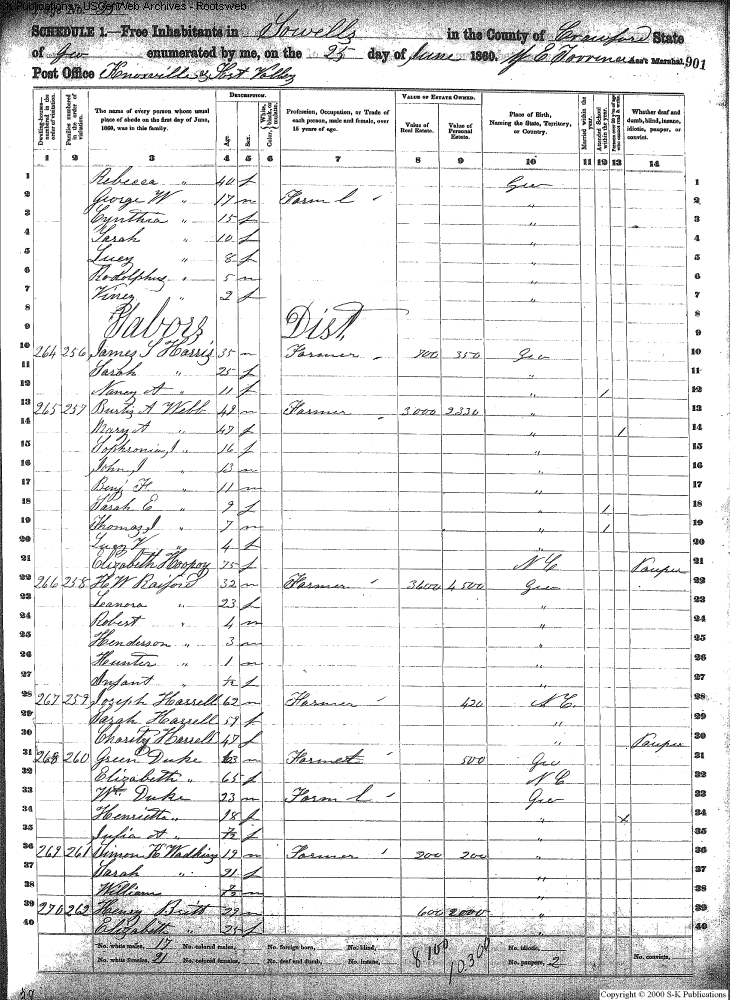 S-K Publications - USGenWeb Archives - Rootsweb
SCHEDULE 1.—Free Inhabitants in Sowells in the County of Crawford State
of Geo enumerated by me, on the 25 day of June 1860. Ass't Marshal. 901
Post Office Knoxville & Fort Valley
DESCRIPTION. VALUE OF ESTATE OWNED.
Dwelling-houses—numbered in the order of visitation. Families numbered in the order of visitation. The name of every person whose usual place of abode on the first day of June, 1860, was in this family. Age Sex. Color, White, black, or mulatto. Profession, Occupation, or Trade of each person, male and female, over 15 years of age. Value of Real Estate. Value of Personal Estate. Place of Birth, Naming the State, Territory, or Country. Married within the year. Attended School within the year. Persons over 20 years of age who cannot read & write. Whether deaf and dumb, blind, insane, idiotic, pauper, or convict.
1 2 3 4 5 6 7 8 9 10 11 12 13 14
1 Rebecca " 40 f Geo 1
2 George W " 17 m Farm L " 2
3 Cynthia " 15 f " 3
4 Sarah " 10 f " 4
5 Lucy " 8 f " 5
6 Rodolphus " 5 m " 6
7 Viney " 2 f " 7
8 8
9 Tabors Dist. 9
10 264 256 James S Harris 35 m Farmer 700 350 Geo 10
11 Sarah " 25 f " 11
12 Nancy A " 11 f " / 12
13 265 257 A Webb 49 m Farmer 3000 2330 " 13
14 Mary A " 47 f " / 14
15 Sophronia J " 16 f " 15
16 John J " 13 m " 16
17 Benj F " 11 m " 17
18 Sarah E " 9 f " / 18
19 Thomas J " 7 m " / 19
20 Lucy V " 4 f " 20
21 Elizabeth 75 f N C Pauper 21
22 266 258 H. W Raiford 32 m Farmer 3600 4500 Geo 22
23 Leanora " 23 f " 23
24 Robert " 4 m " 24
25 Henderson " 3 m " 25
26 Hunter " 1 m " 26
27 Infant " " 27
28 267 259 Joseph Harrell 62 m Farmer 420 N C. 28
29 Sarah Harrell 59 f " 29
30 Charity Harrell 47 f " Pauper 30
31 268 260 Green Duke m Farmer 500 Geo 31
32 Elizabeth " 65 f N C 32
33 Wm Duke 23 m Farm L Geo 33
34 Henrietta " 18 f " x 34
35 Julia A " f " 35
36 269 261 Simon K Wadkins 19 m Farmer 200 200 " 36
37 Sarah " 21 f " 37
38 William m " 38
39 270 262 Henry Britt 29 m 600 2000 " 39
40 Elizabeth " 25 f " 40
No. white males, 17 No. colored males, No. foreign born, No. blind, 8100 10.300 No. idiotic,
No. white females, 21 No. colored females, No. deaf and dumb, No. insane, No. paupers, 2 No. convicts,
Copyright © 2000 S-K Publications